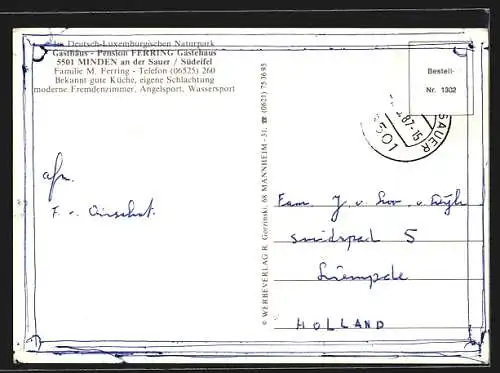 Im Deutsch-Luxemburgischen Naturpark
Gasthaus - Pension FERRING Gästehaus
5501 MINDEN an der Sauer / Südeifel
Familie M. Ferring - Telefon (06525) 260
Bekannt gute Küche, eigene Schlachtung
moderne Fremdenzimmer, Angelsport, Wassersport
Bestell-
Nr. 1302
5501
.87-15
SAUER
© WERBEVERLAG R. Gorzinski, 68 MANNHEIM - 31, ☎ (0621) 75 36 95
afz.
F. v.
Fam J. v.
smidspad 5
Liempde
HOLLAND